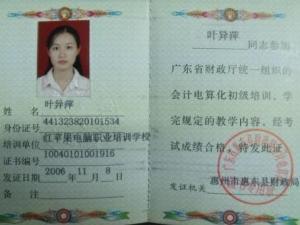 姓名 叶异萍
身份证号 441323820101534
培训单位 红苹果电脑职业培训学校
证书编号 10040101001916
发证日期 2006年11月8日
备注
叶异萍
同志参加
广东省财政厅统一组织的
会计电算化初级培训，学
完规定的教学内容、经考
试成绩合格，特发此证。
发证机关 惠州市惠东县财政局